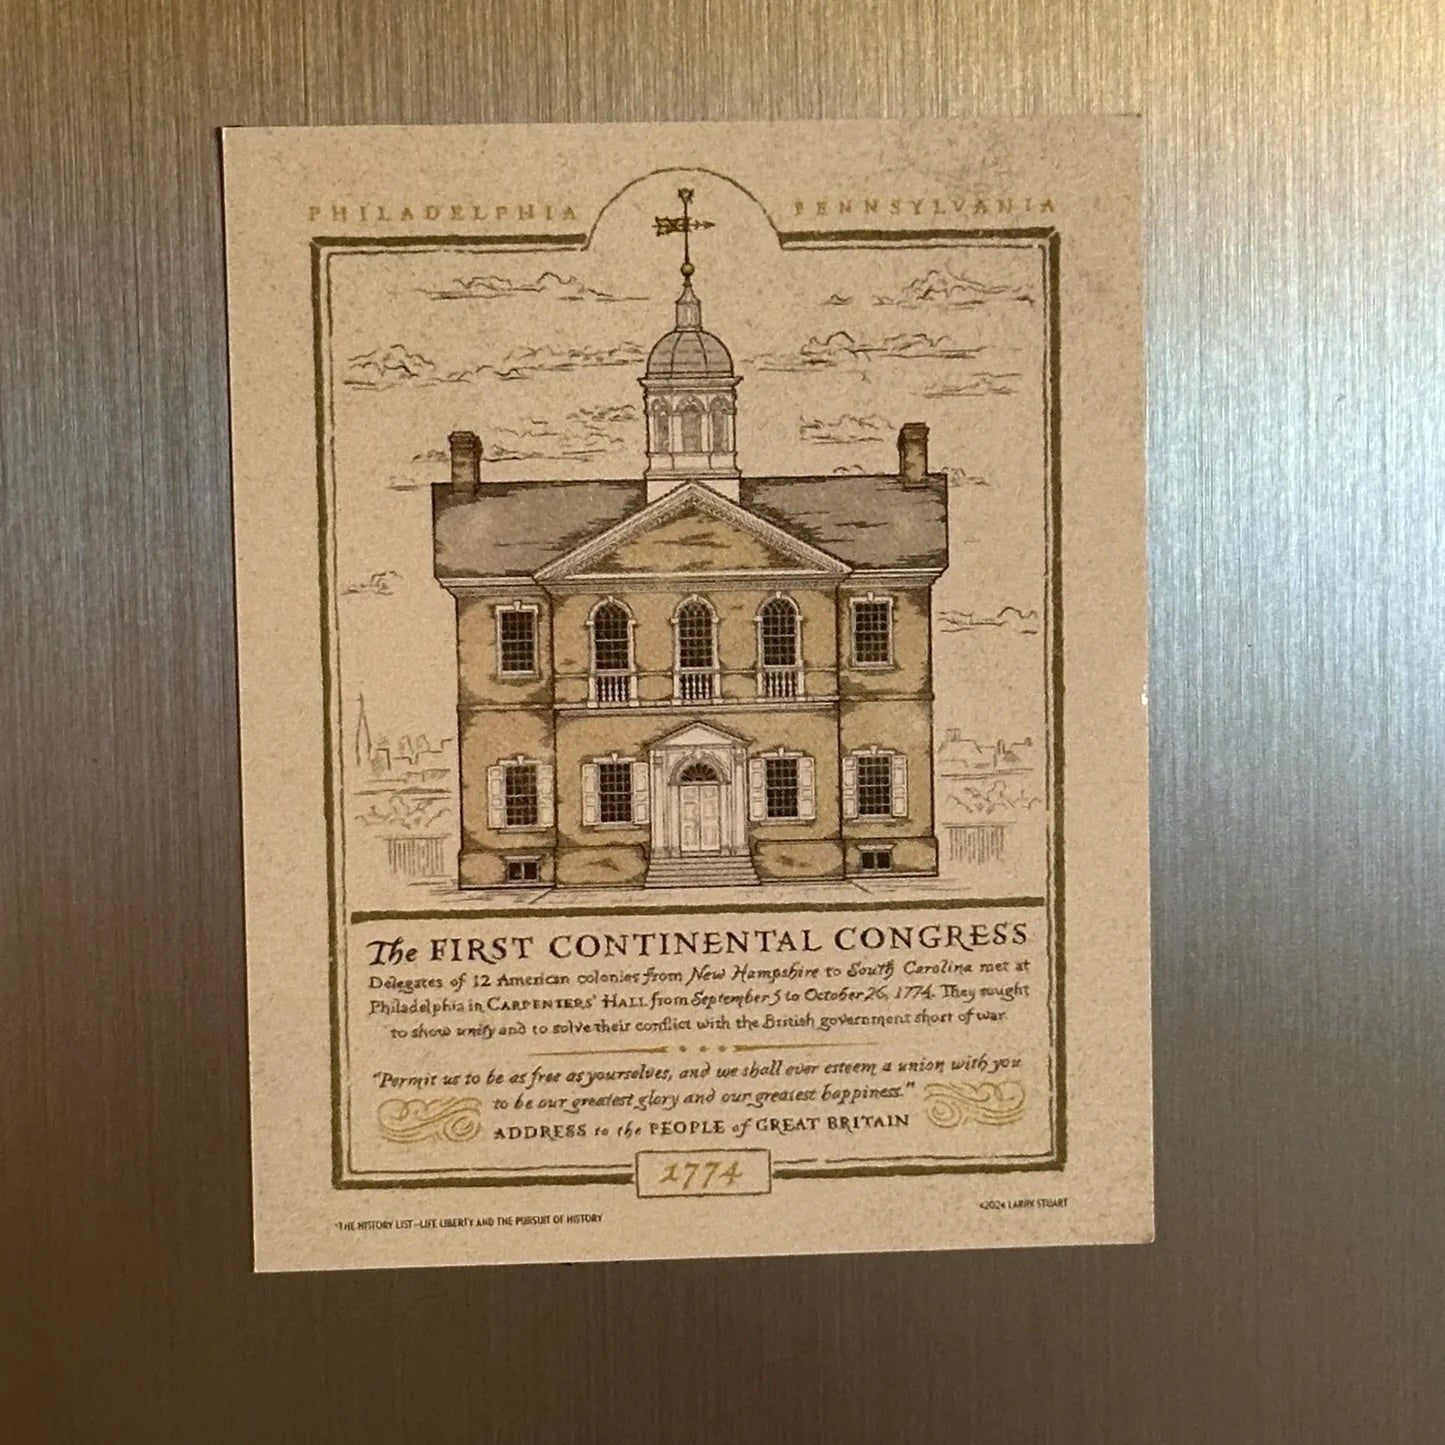 PHILADELPHIA PENNSYLVANIA
The FIRST CONTINENTAL CONGRESS
Delegates of 12 American colonies from New Hampshire to South Carolina met at
Philadelphia in CARPENTERS' HALL from September 5 to October 26, 1774. They sought
to show unity and to solve their conflict with the British government short of war.
"Permit us to be as free as yourselves, and we shall ever esteem a union with you
to be our greatest glory and our greatest happiness."
ADDRESS to the PEOPLE of GREAT BRITAIN
1774
THE HISTORY LIST—LIFE, LIBERTY AND THE PURSUIT OF HISTORY
©2024 LARRY STUART